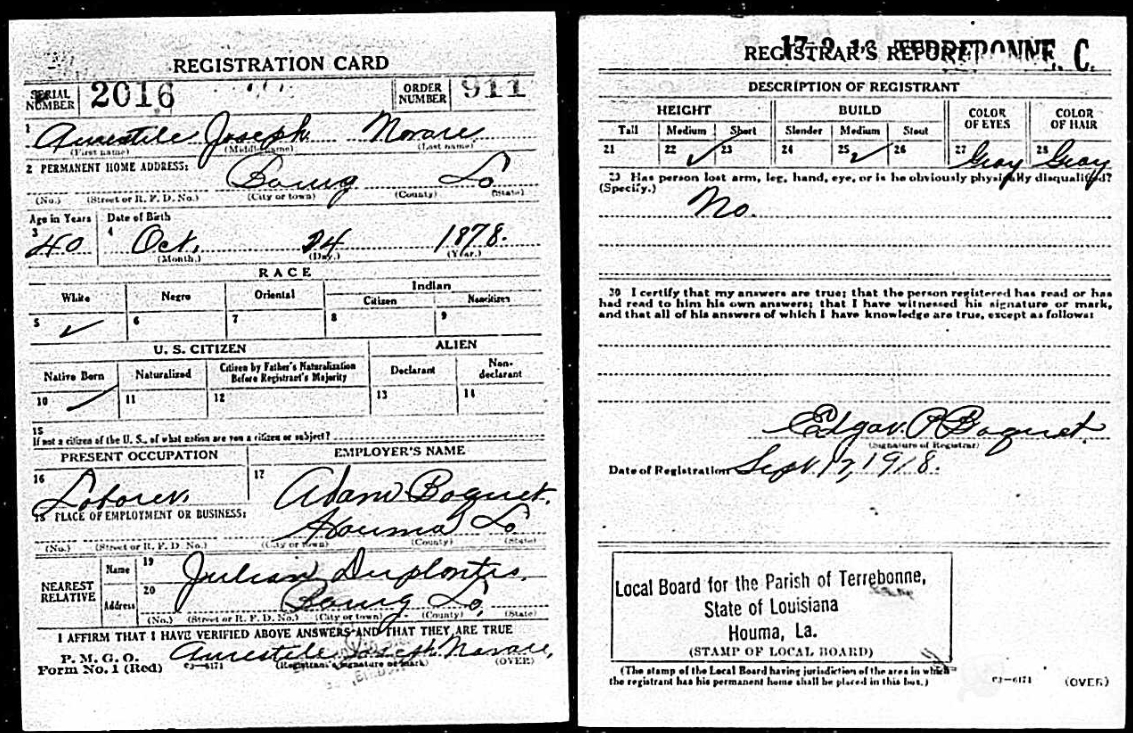 REGISTRATION CARD
SERIAL NUMBER 2016 ORDER NUMBER 911
1 Aurestile Joseph Navare
(First name) (Middle name) (Last name)
2 PERMANENT HOME ADDRESS:
Bourg La
(No.) (Street or R. F. D. No.) (City or town) (County) (State)
Age in Years Date of Birth
3 40 4 Oct. 24 1878.
(Month.) (Day.) (Year.)
RACE
White Negro Oriental Indian
Citizen Noncitizen
5 ✓ 6 7 8 9
U. S. CITIZEN ALIEN
Native Born Naturalized Citizen by Father's Naturalization Before Registrant's Majority Declarant Non-declarant
10 ✓ 11 12 13 14
15
If not a citizen of the U. S., of what nation are you a citizen or subject?
PRESENT OCCUPATION EMPLOYER'S NAME
16 Laborer. 17 Adam Boquet.
18 PLACE OF EMPLOYMENT OR BUSINESS:
Houma La
(No.) (Street or R. F. D. No.) (City or town) (County) (State)
NEAREST RELATIVE
Name 19 Julian Duplantis.
Address 20 Bourg La,
(No.) (Street or R. F. D. No.) (City or town) (County) (State)
I AFFIRM THAT I HAVE VERIFIED ABOVE ANSWERS AND THAT THEY ARE TRUE
P. M. G. O.
Form No. 1 (Red) 03-6171 Aurestile Joseph Navare,
(Registrant's signature or mark) (OVER)
REGISTRAR'S REPORT
17 2 13 TERREBONNE, C.
DESCRIPTION OF REGISTRANT
HEIGHT BUILD COLOR OF EYES COLOR OF HAIR
Tall Medium Short Slender Medium Stout
21 22 ✓ 23 24 25 ✓ 26 27 Gray 28 Gray
29 Has person lost arm, leg, hand, eye, or is he obviously physically disqualified?
(Specify.)
No.
30 I certify that my answers are true; that the person registered has read or has
had read to him his own answers; that I have witnessed his signature or mark,
and that all of his answers of which I have knowledge are true, except as follows:
Edgar P. Boquet
(Signature of Registrar)
Date of Registration Sept. 12, 1918.
Local Board for the Parish of Terrebonne,
State of Louisiana
Houma, La.
(STAMP OF LOCAL BOARD)
(The stamp of the Local Board having jurisdiction of the area in which
the registrant has his permanent home shall be placed in this box.)
03-6171 (OVER)